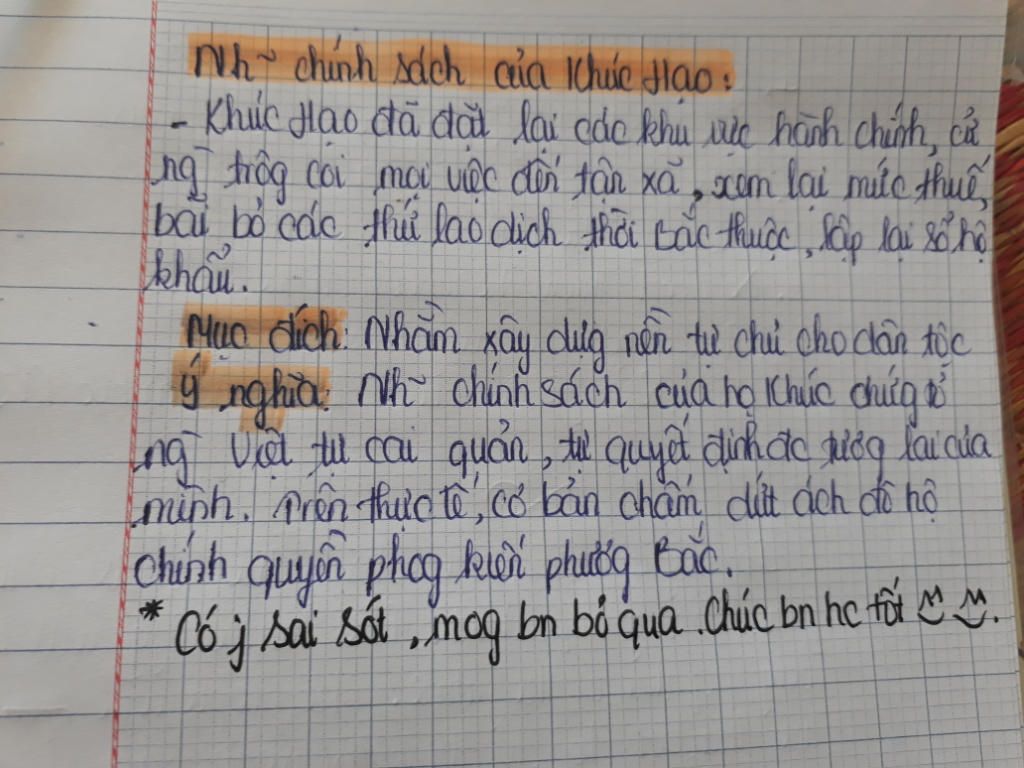 Nh~ chính sách của Khúc Hạo:
- Khúc Hạo đã đặt lại các khu vực hành chính, cử
ng~ trôg coi mọi việc đến tận xã, xem lại mức thuế,
bãi bỏ các thứ lao dịch thời Bắc thuộc, lập lại sổ hộ
khẩu.
Mục đích: Nhằm xây dựg nền tự chủ cho dân tộc
Ý nghĩa: Nh~ chính sách của họ Khúc chứg tỏ
ng~ Việt tự cai quản, tự quyết định đc tươg lai của
mình. Trên thực tế, cơ bản chấm dứt ách đô hộ
chính quyền phog kiến phươg Bắc.
* Có j sai sót, mog bn bỏ qua. Chúc bn hc tốt